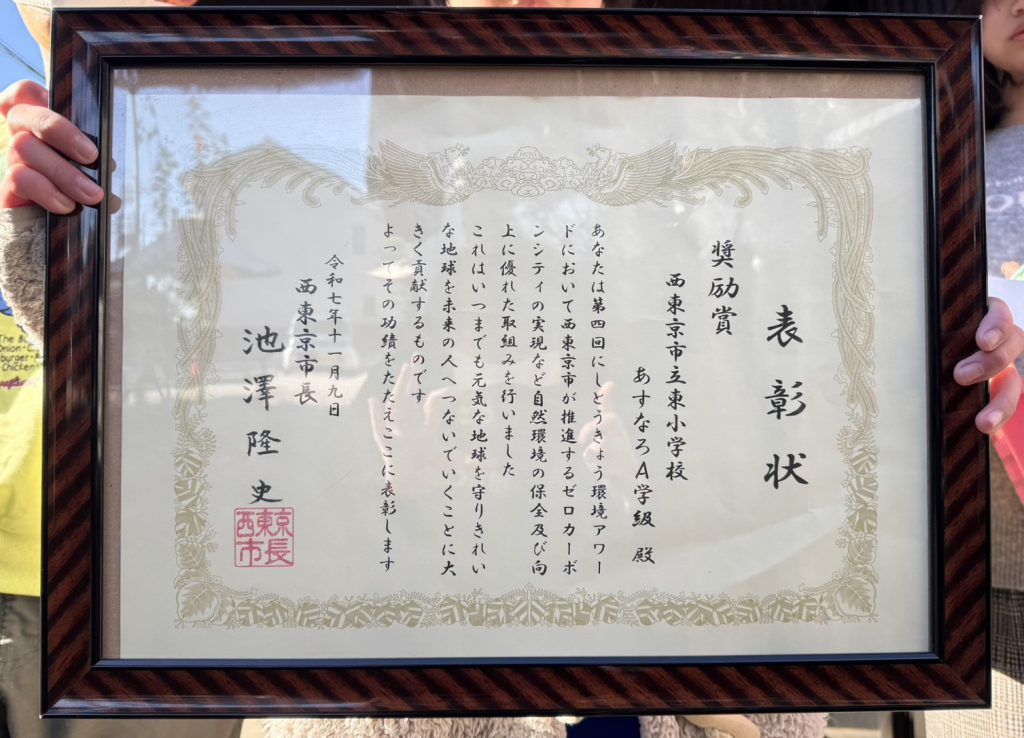 表彰状
奨励賞
西東京市立東小学校
あすなろA学級 殿
あなたは第四回にしとうきょう環境アワー
ドにおいて西東京市が推進するゼロカーボ
ンシティの実現など自然環境の保全及び向
上に優れた取組みを行いました
これはいつまでも元気な地球を守りきれい
な地球を未来の人へつないでいくことに大
きく貢献するものです
よってその功績をたたえここに表彰します
令和七年十一月九日
西東京市長
池澤隆史
西東京
市長
The B
Onion・C
burger・
Chicken